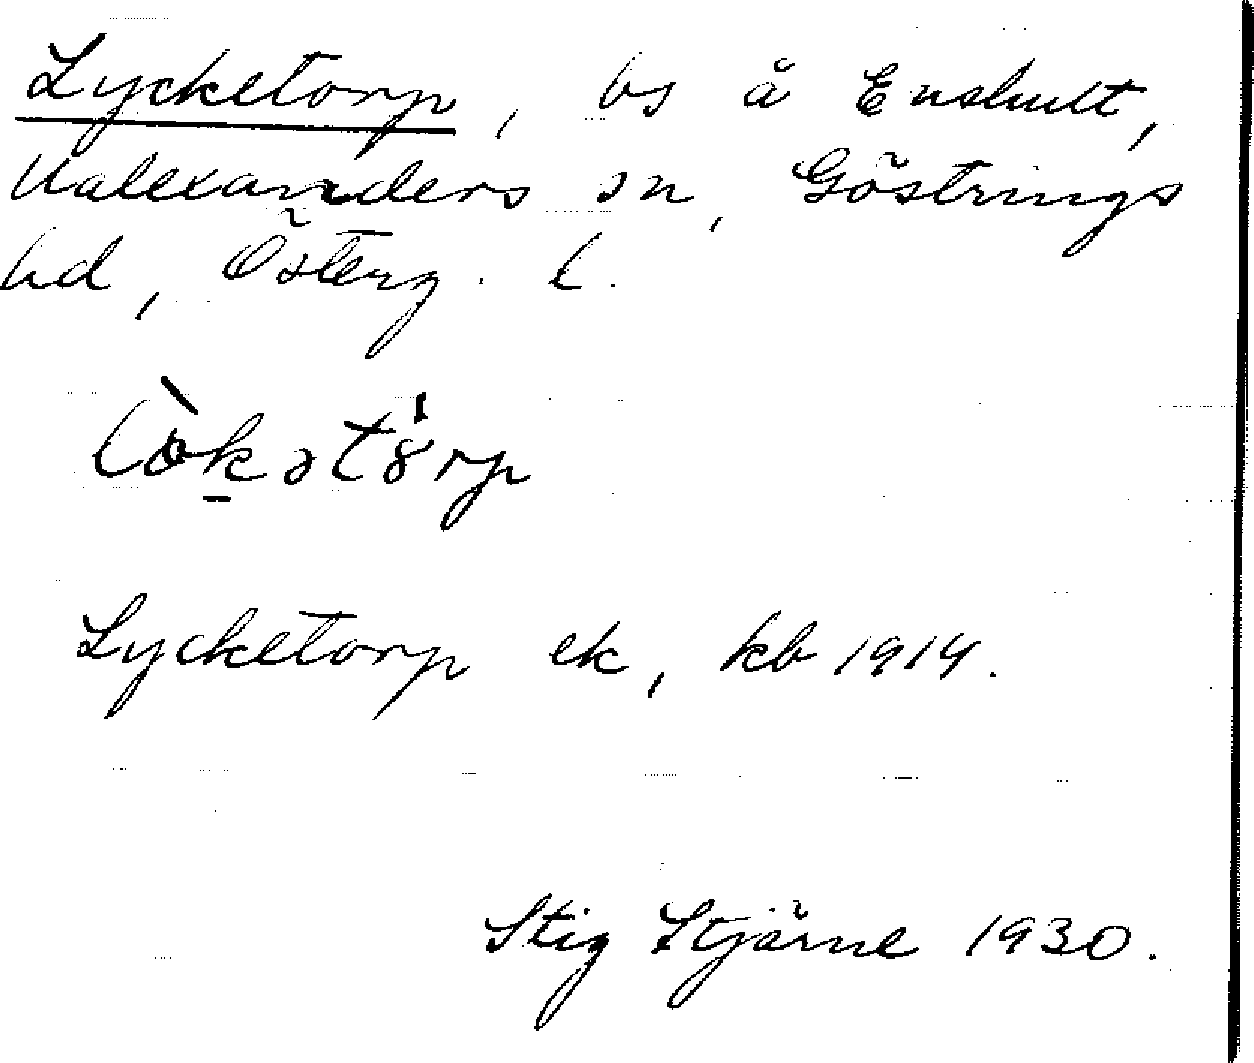 Lycketorp, ls å Enshult,
Valexanders sn, Göstrings
hd, Österg. l.
lòkətȯrp
Lycketorp ek, kb 1914.
Stig Stjärne 1930.